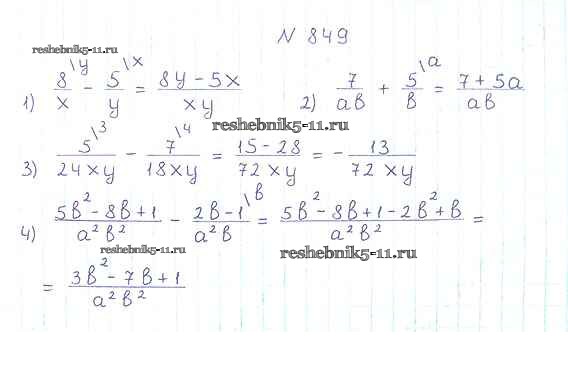 N 849
reshebnik5-11.ru
1) 8\y/x - 5\x/y = (8y - 5x)/(xy)   2) 7/(ab) + 5\a/b = (7 + 5a)/(ab)
reshebnik5-11.ru
3) 5\3/(24xy) - 7\4/(18xy) = (15 - 28)/(72xy) = - 13/(72xy)
4) (5b² - 8b + 1)/(a²b²) - (2b - 1)\b/(a²b) = (5b² - 8b + 1 - 2b² + b)/(a²b²) =
reshebnik5-11.ru reshebnik5-11.ru
= (3b² - 7b + 1)/(a²b²)